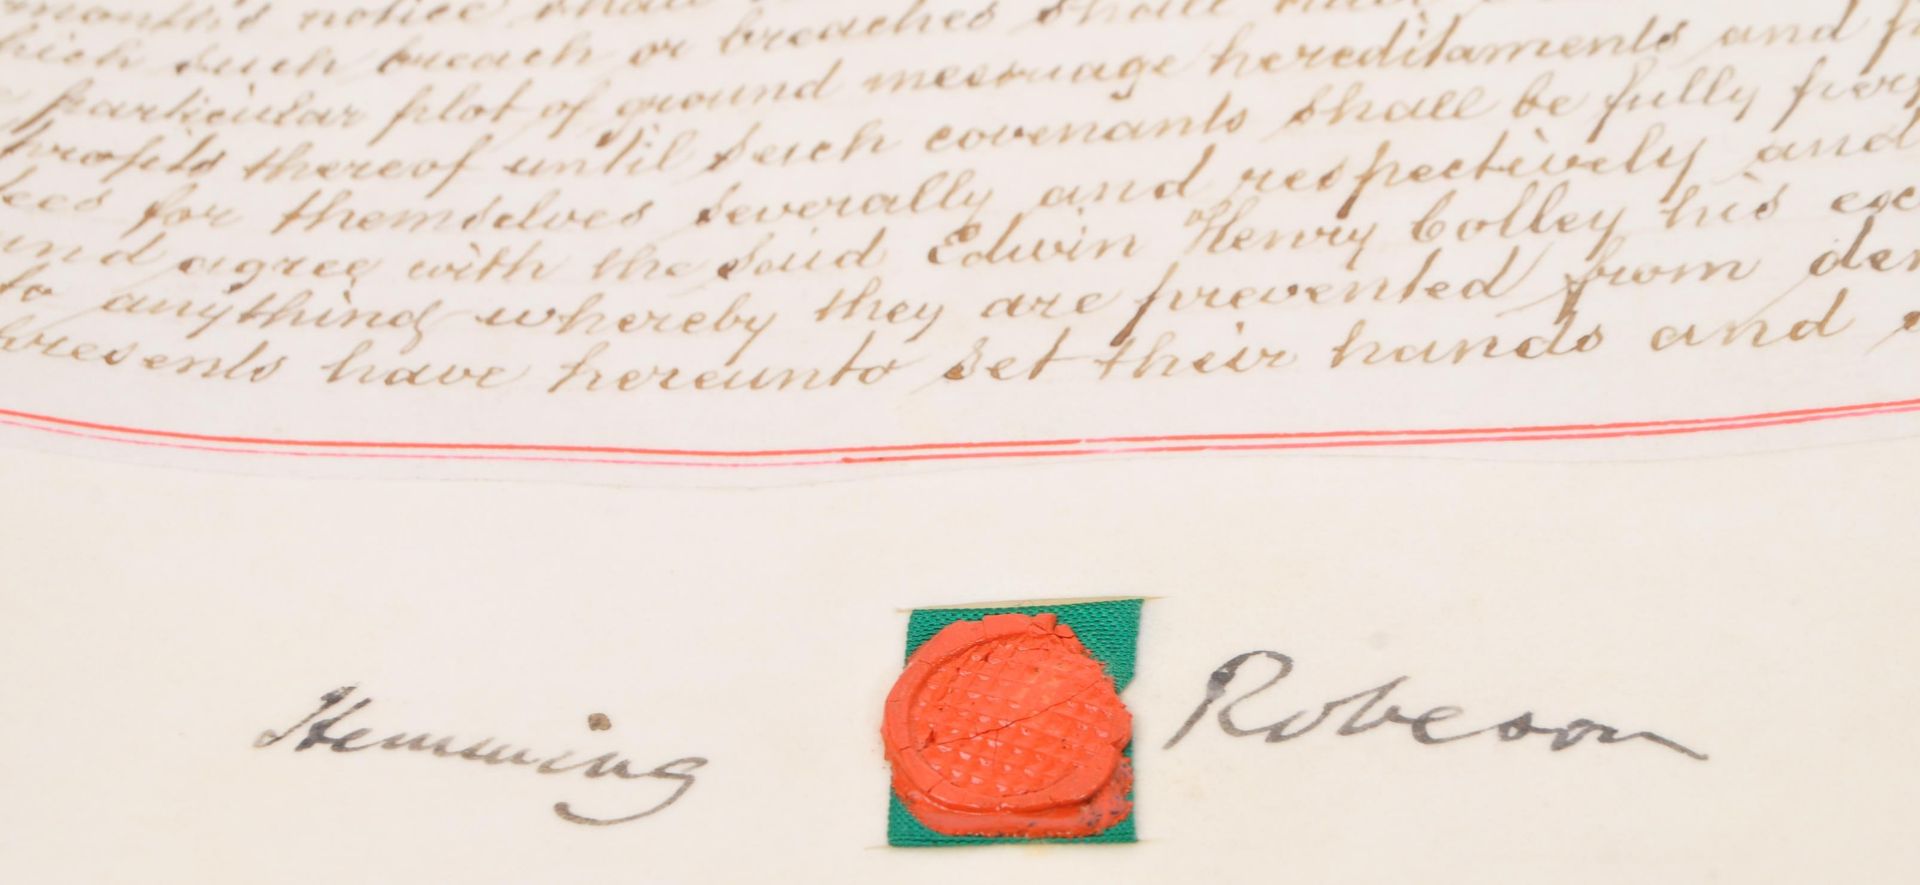 month's notice shall
which such breach or breaches shall
particular plot of ground messuage hereditaments and
profits thereof until such covenants shall be fully
for themselves severally and respectively and
and agree with the said Edwin Henry Colley his
to anything whereby they are prevented from
presents have hereunto set their hands and
Hemming Robeson